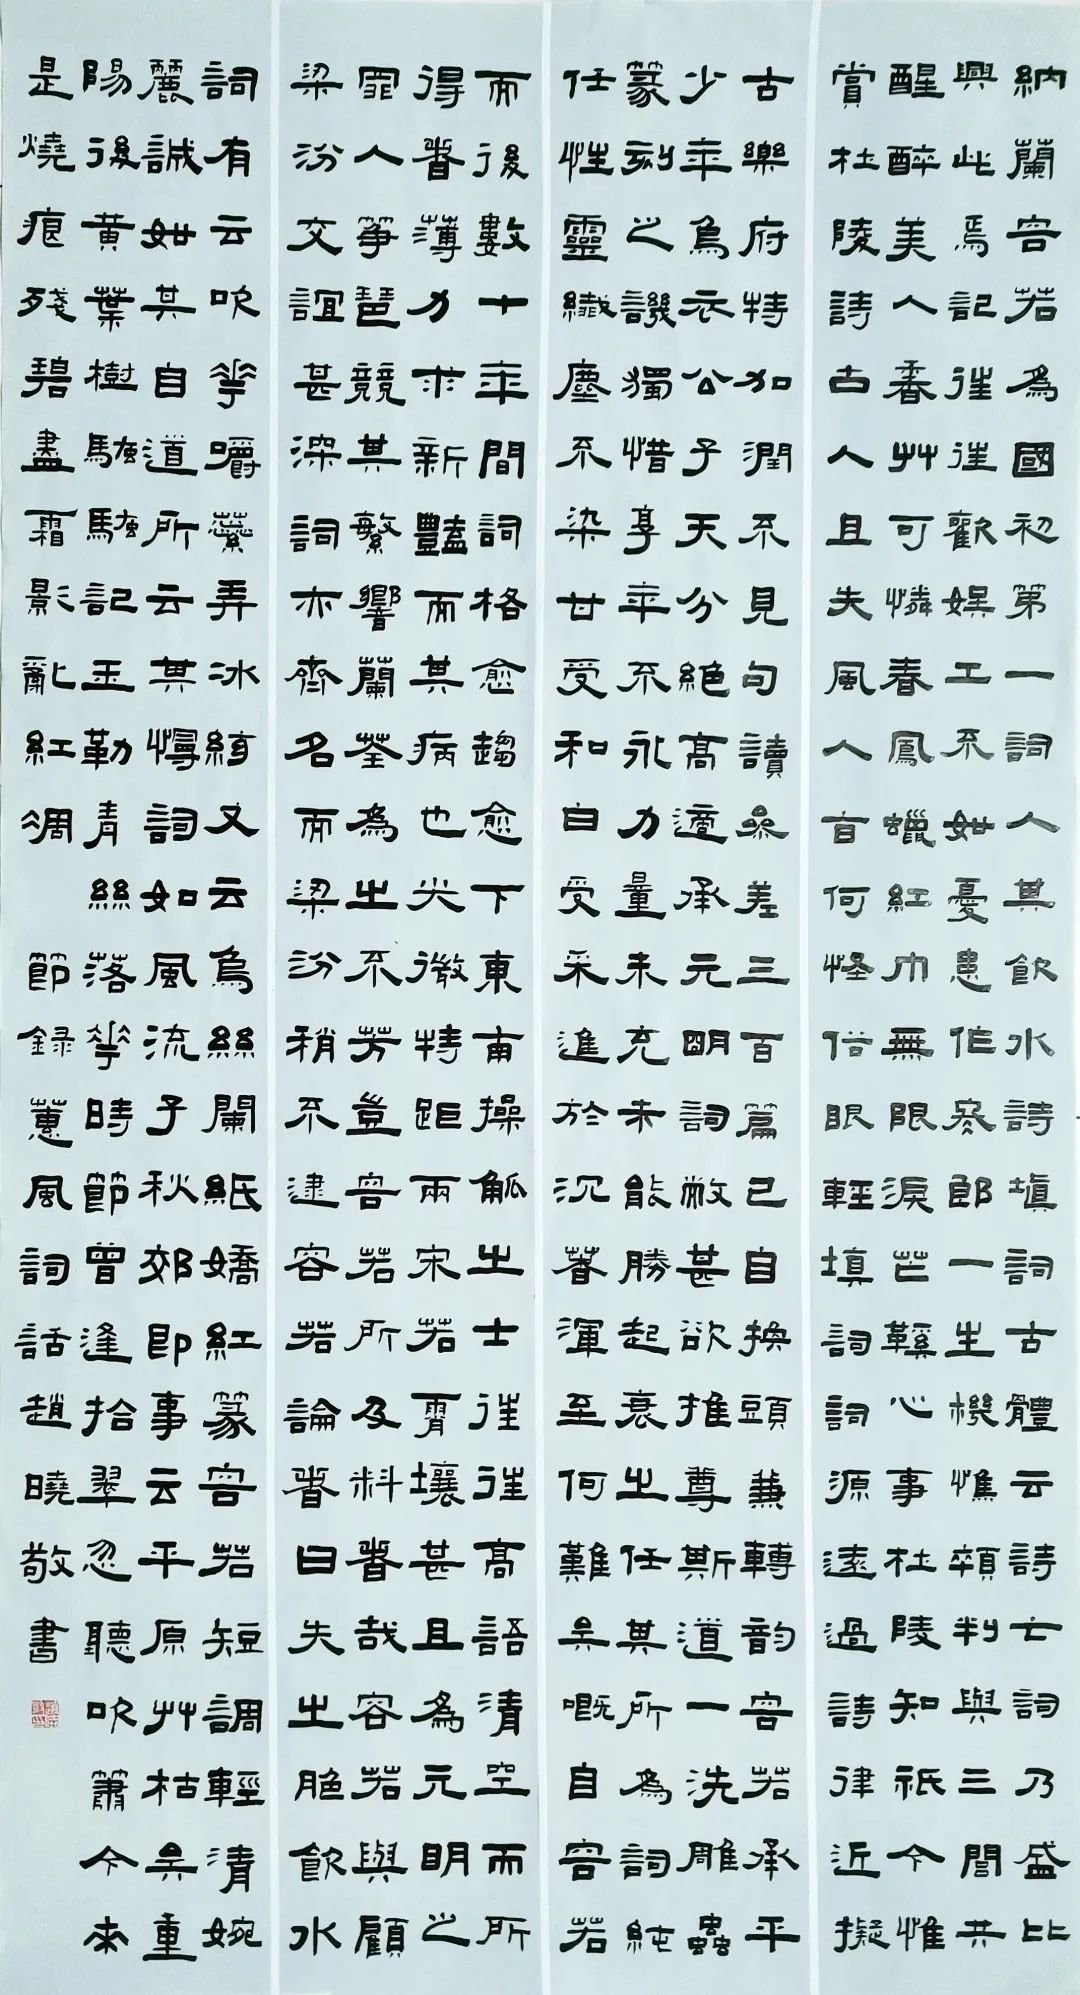 納蘭容若為國初第一詞人其飲水詩填詞古體云詩亡詞乃盛比
興此焉記往往歡娛工不如憂患作冬郎一生極憔顇判與三閭共
醒醉美人香艸可憐春鳳蠟紅巾無限淚芒鞵心事杜陵知祇今惟
賞杜陵詩古人且失風人旨何怪俗眼輕填詞詞源遠過詩律近擬
古樂府特加潤不見句讀參差三百篇已自換頭兼轉韵容若承平
少年烏衣公子天分絕高適承元明詞敝甚欲推尊斯道一洗雕蟲
篆刻之譏獨惜享年不永力量未充未能勝起衰之任其所為詞純
任性靈纖塵不染甘受和白受采進於沉著渾至何難矣嘅自容若
而後數十年間詞格愈趨愈下東南操觚之士往往高語清空而所
得者薄力求新豔而其病也尖微特距兩宋若霄壤甚且為元明之
罪人箏琶競其繁響蘭荃為之不芳豈容若所及料者哉容若與顧
梁汾交誼甚深詞亦齊名而梁汾稍不逮容若論者曰失之脆飲水
詞有云吹華嚼蕊弄冰絃又云烏絲闌紙嬌紅篆容若短調輕清婉
麗誠如其自道所云其慢詞如風流子秋郊即事云平原艸枯矣重
陽後黃葉樹騷騷記玉勒青絲落華時節曾逢拾翠忽聽吹簫今來
是燒痕殘碧盡霜影亂紅凋 節錄蕙風詞話趙曉敬書